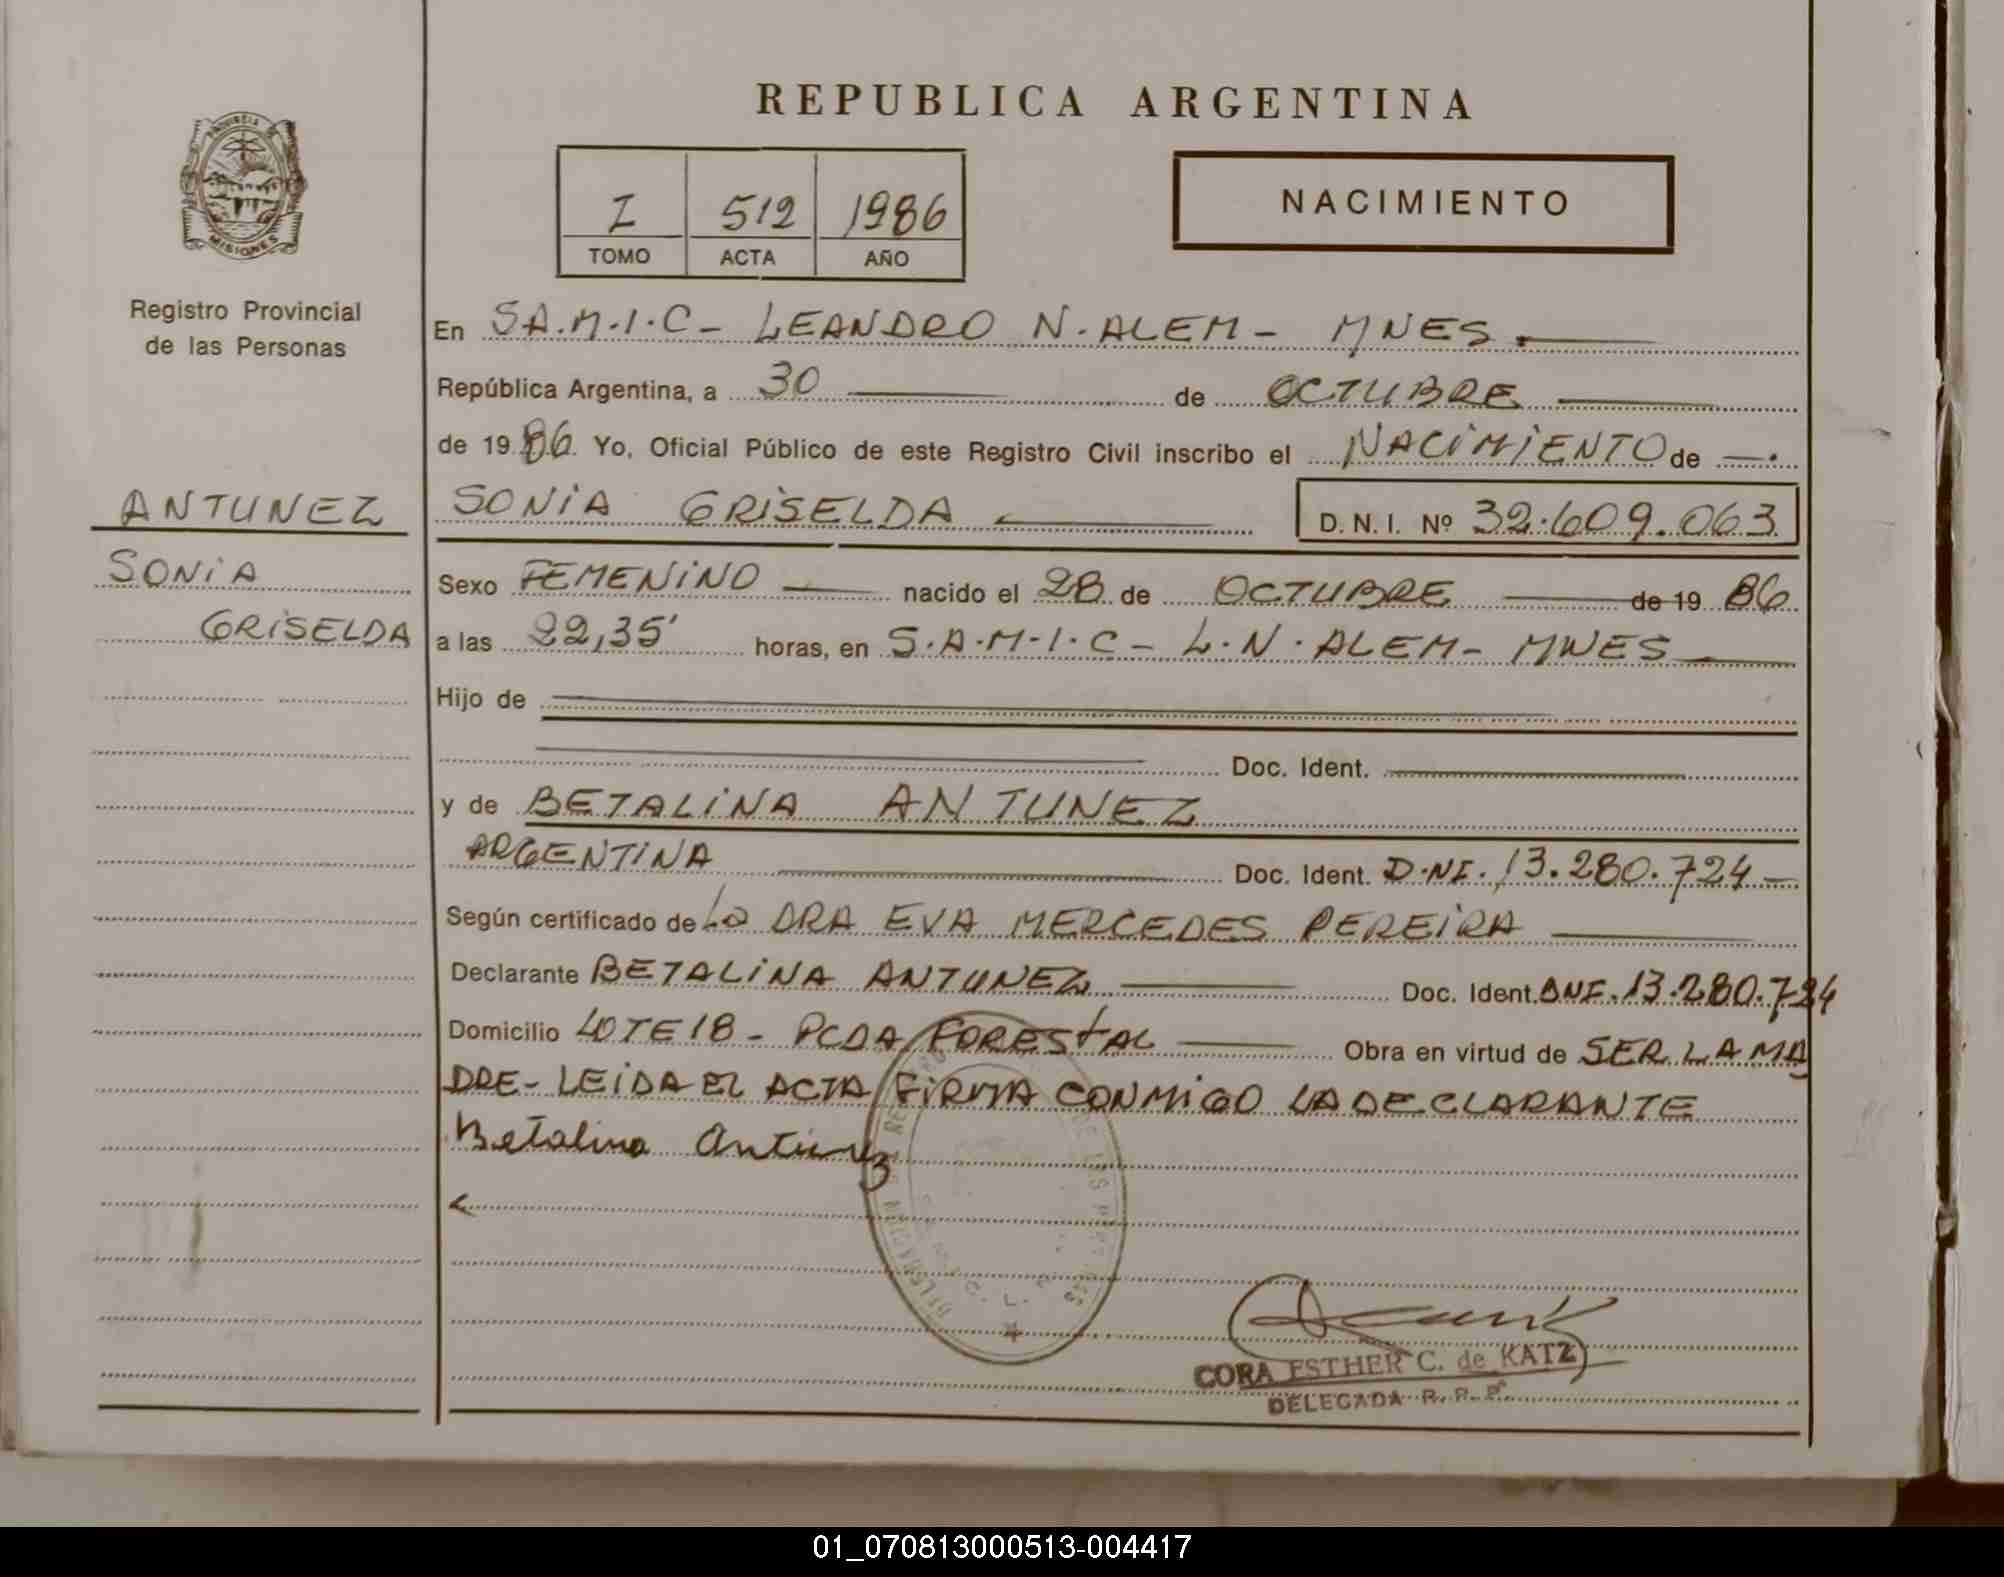 REPUBLICA ARGENTINA
PROVINCIA DE
MISIONES
Registro Provincial
de las Personas
I 512 1986
TOMO ACTA AÑO
NACIMIENTO
En S.A.M.I.C - LEANDRO N. ALEM - MNES.
República Argentina, a 30 de OCTUBRE
de 1986. Yo, Oficial Público de este Registro Civil inscribo el NACIMIENTO de
ANTUNEZ
SONIA
GRISELDA
SONIA GRISELDA D.N.I. Nº 32.609.063
Sexo FEMENINO nacido el 28 de OCTUBRE de 19 86
a las 22,35' horas, en S.A.M.I.C - L.N. ALEM - MNES
Hijo de
Doc. Ident.
y de BETALINA ANTUNEZ
ARGENTINA Doc. Ident. D.NI. 13.280.724 -
Según certificado de La DRA EVA MERCEDES PEREIRA
Declarante BETALINA ANTUNEZ Doc. Ident. DNI. 13.280.724
Domicilio LOTE 18 - PCDA FORESTAL Obra en virtud de SER LA MA
DRE - LEIDA EL ACTA FIRMA CONMIGO LA DECLARANTE
Betalina Antunez
CORA ESTHER C. de KATZ
DELEGADA R. P. P.
01_070813000513-004417